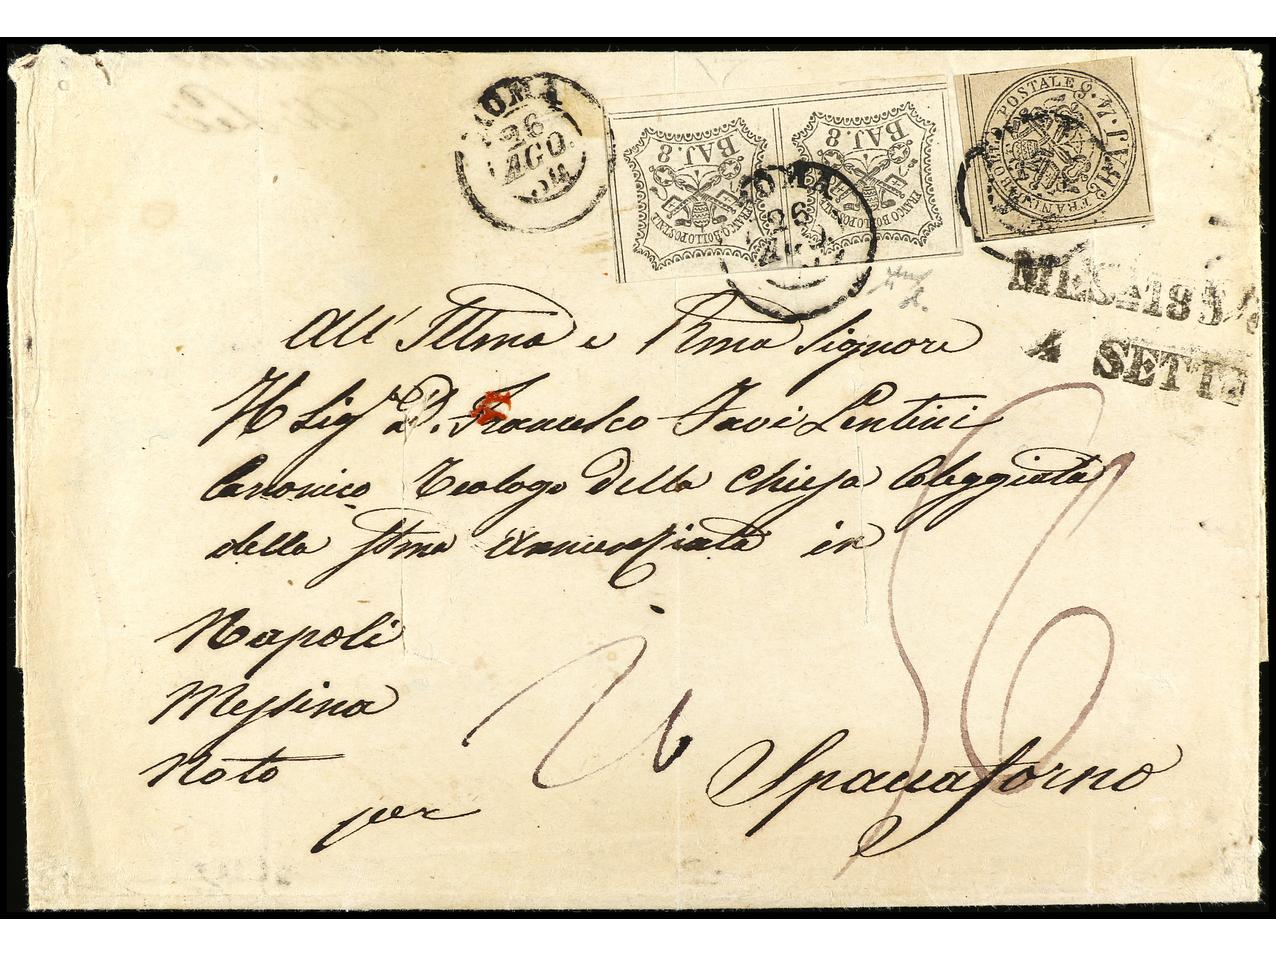 ROMA
26
AGO
54
BAJ. 8
FRANCO BOLLO POSTALE
BAJ. 8
FRANCO BOLLO POSTALE
ROMA
26
AGO
BAJ. 6
FRANCO BOLLO POSTALE
1854
4 SETTE
All' Illma e Rma Signore
Il Sigr D. Francesco Savi Lentini
Canonico Teologo della Chiesa Colleggiata
della SSma Annunziata in
Napoli
Messina
Noto
per
Spaccaforno